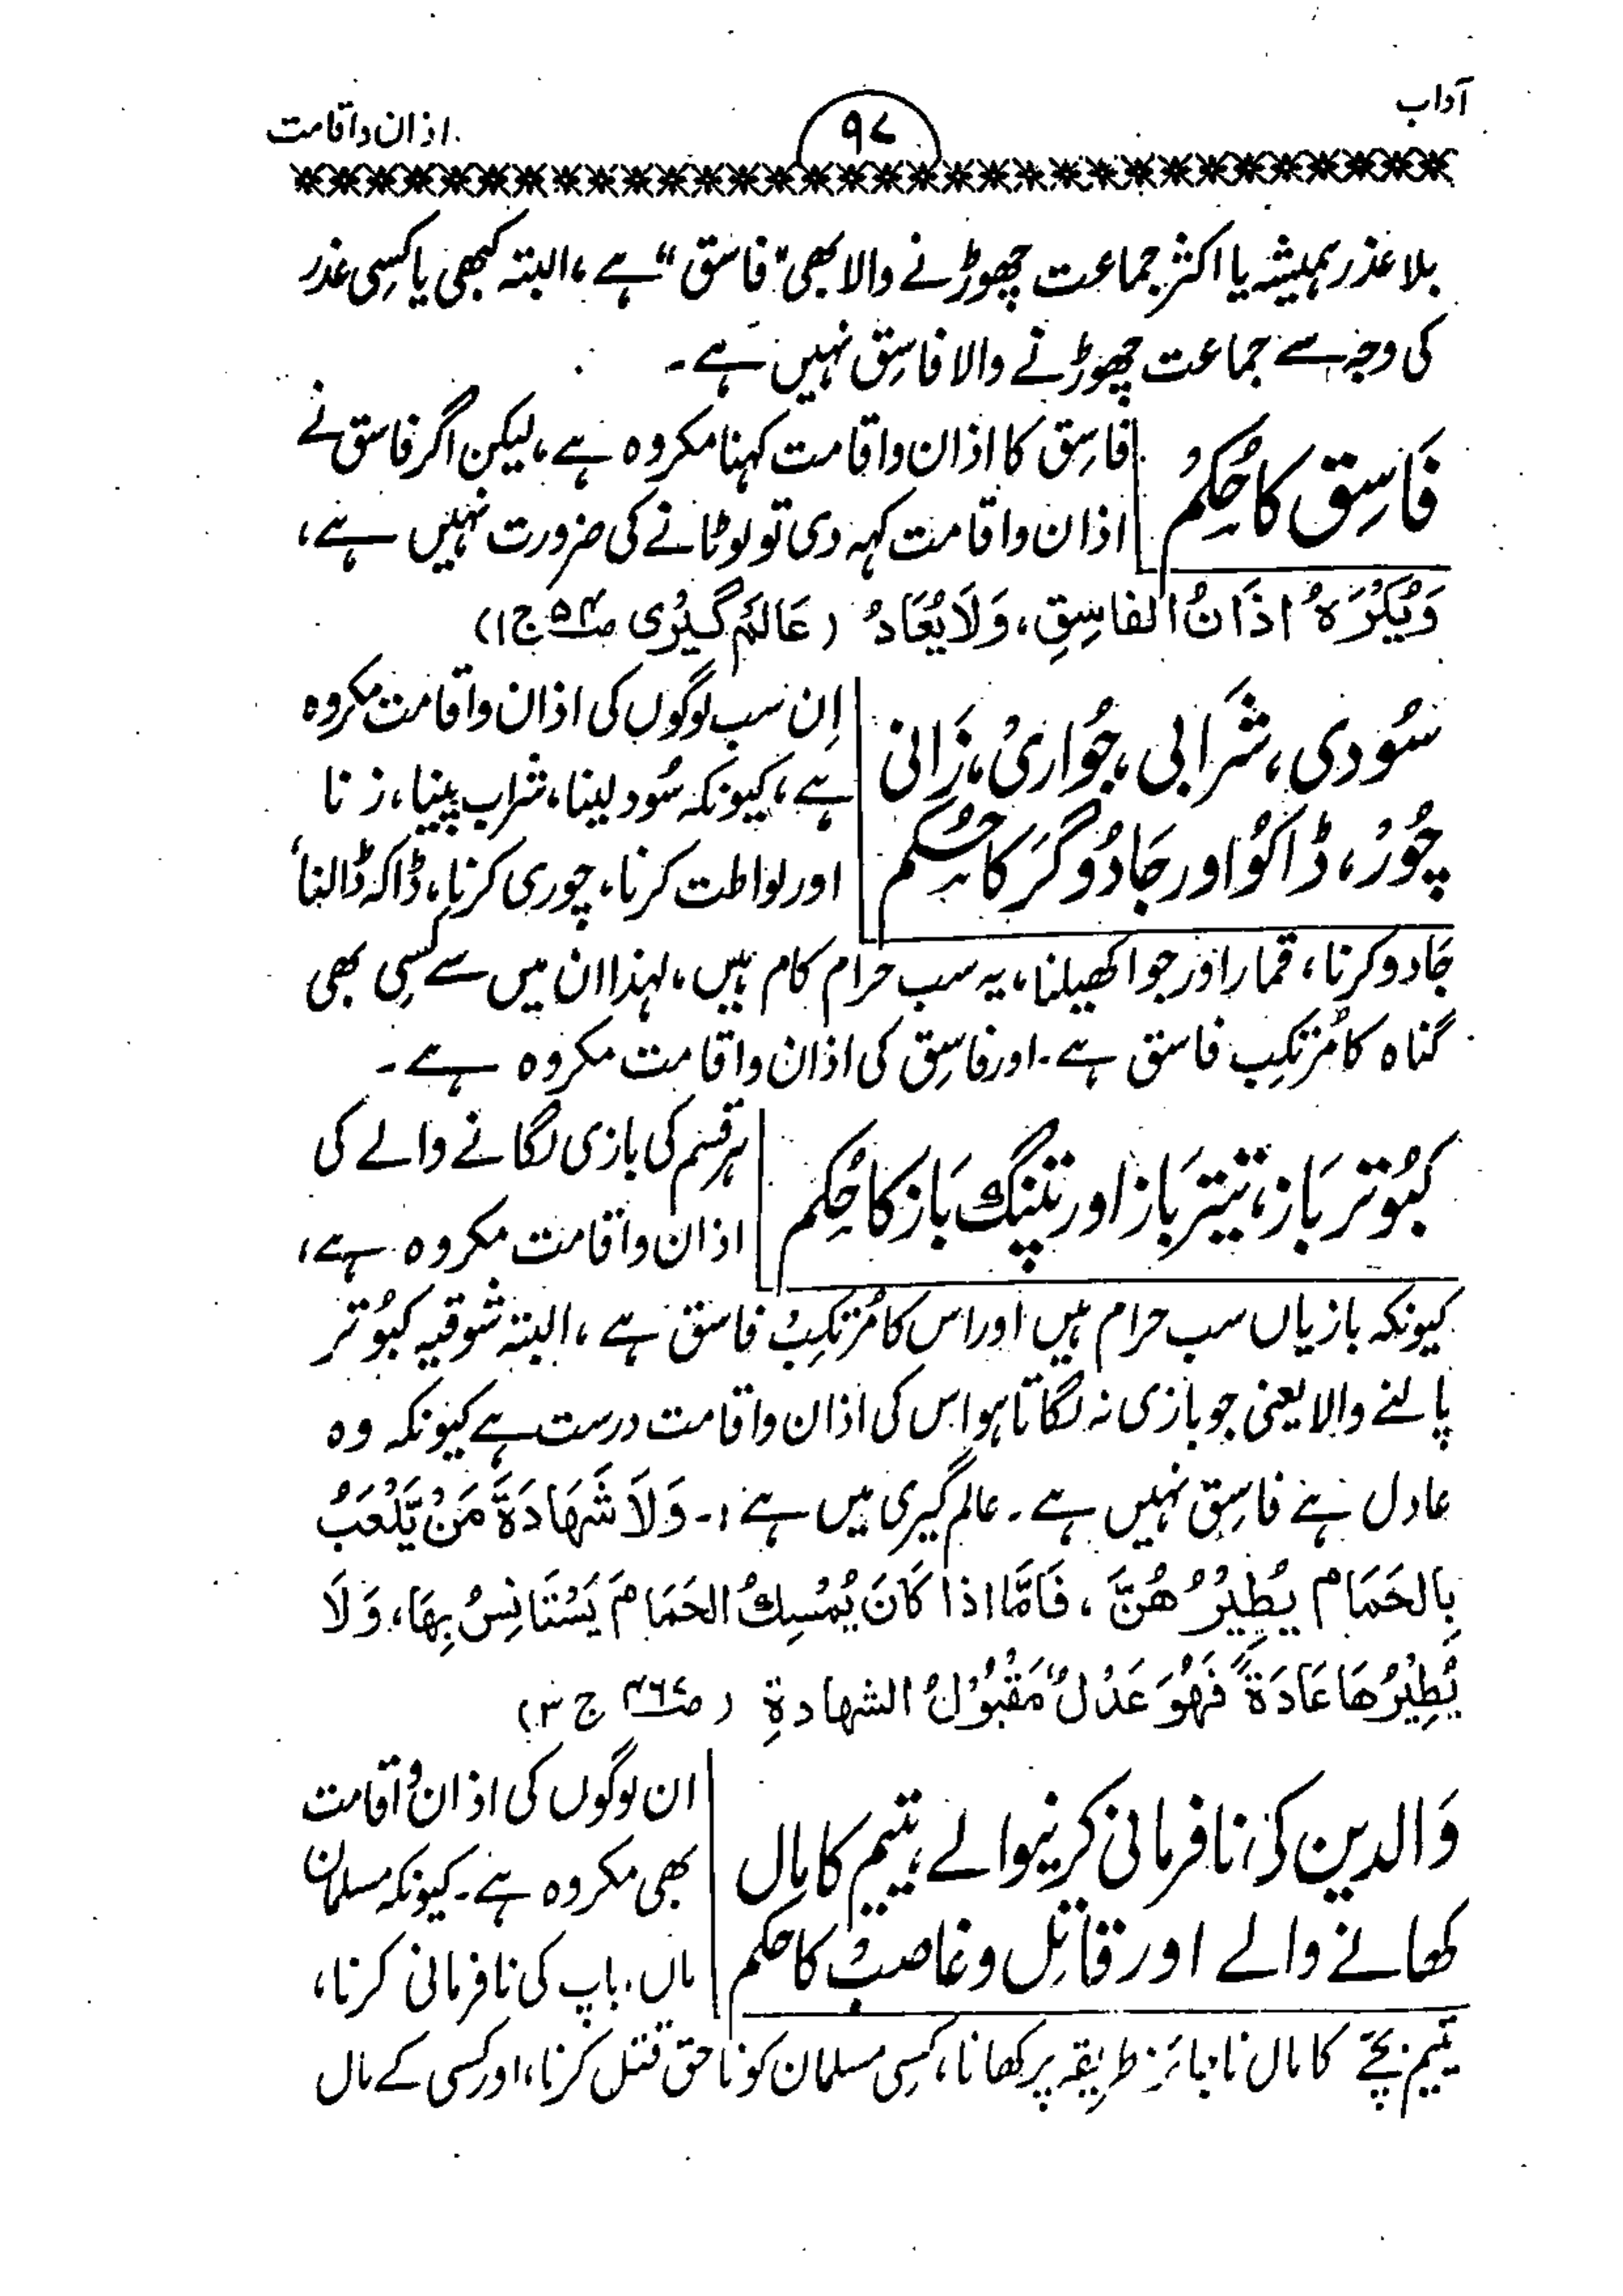 آداب
۹۷
اذان واقامت
بلا عذر ہمیشہ یا اکثر جماعت چھوڑنے والا بھی "فاسق" ہے، البتہ کبھی یا کِسی عذر
کی وجہ سے جماعت چھوڑنے والا فاسِق نہیں ہے۔
فَاسِق کا حُکمُ
فاسِق کا اذان واقامت کہنا مکروہ ہے، لیکن اگر فاسق نے
اذان واقامت کہہ دی تو لوٹانے کی ضرورت نہیں ہے،
وَیُکْرَہُ اذَانُ الفاسِقِ، وَلَا یُعَادُ (عَالَمگیرْی ص۵۴ ج۱)
سُودی، شَرَابی، جُواریْ، زَانی
چُورْ، ڈاکوُ اور جَادُوگَر کا حُکم
اِن سب لوگوں کی اذان واقامت مکروہ
ہے، کیونکہ سُود لینا، شراب پینا، زنا
اور لواطت کرنا، چوری کرنا، ڈاکہ ڈالنا،
جَادو کرنا، قمار اور جوا کھیلنا، یہ سب حرام کام ہیں، لہذا ان میں سے کسِی بھی
گناہ کا مُرتکِب فاسق ہے۔ اور فاسِق کی اذان واقامت مکروہ ہے۔
کبُوتر بَاز، تیتر بَاز اور پتنگ بَاز کا حُکم
ہر قسم کی بازی لگانے والے کی
اذان واقامت مکروہ ہے،
کیونکہ بازیاں سب حرام ہیں اور اس کا مُرتکِبْ فاسق ہے، البتہ شوقیہ کبُوتر
پالنے والا یعنی جو بازی نہ لگاتا ہو اس کی اذان واقامت درست ہے کیونکہ وہ
عادل ہے فاسِق نہیں ہے۔ عالم گیری میں ہے :۔ وَلَا شَھَادَۃَ مَنْ یَّلْعَبُ
بِالحَمَامِ یُطِیْرُھُنَّ، فَاَمَّا اذا کَانَ یُمْسِکُ الحَمَامَ یَسْتَانِسُ بِھَا، وَلَا
یُطِیْرُھَا عَادَۃً فَھُوَ عَدْلٌ مَقْبُوْلُ الشھادۃِ (ص۴۶۷ ج ۳)
وَالدین کی نافرمانی کرنیوالے، یتیم کا مال
کھانے والے اور قاتِل وغاصبْ کا حکم
ان لوگوں کی اذان واقامت
بھی مکروہ ہے۔ کیونکہ مسلمان
ماں، باپ کی نافرمانی کرنا،
یتیم بچّے کا مال ناجائز طریقہ پر کھانا، کسِی مسلمان کو ناحق قتل کرنا، اور کسی کے مال